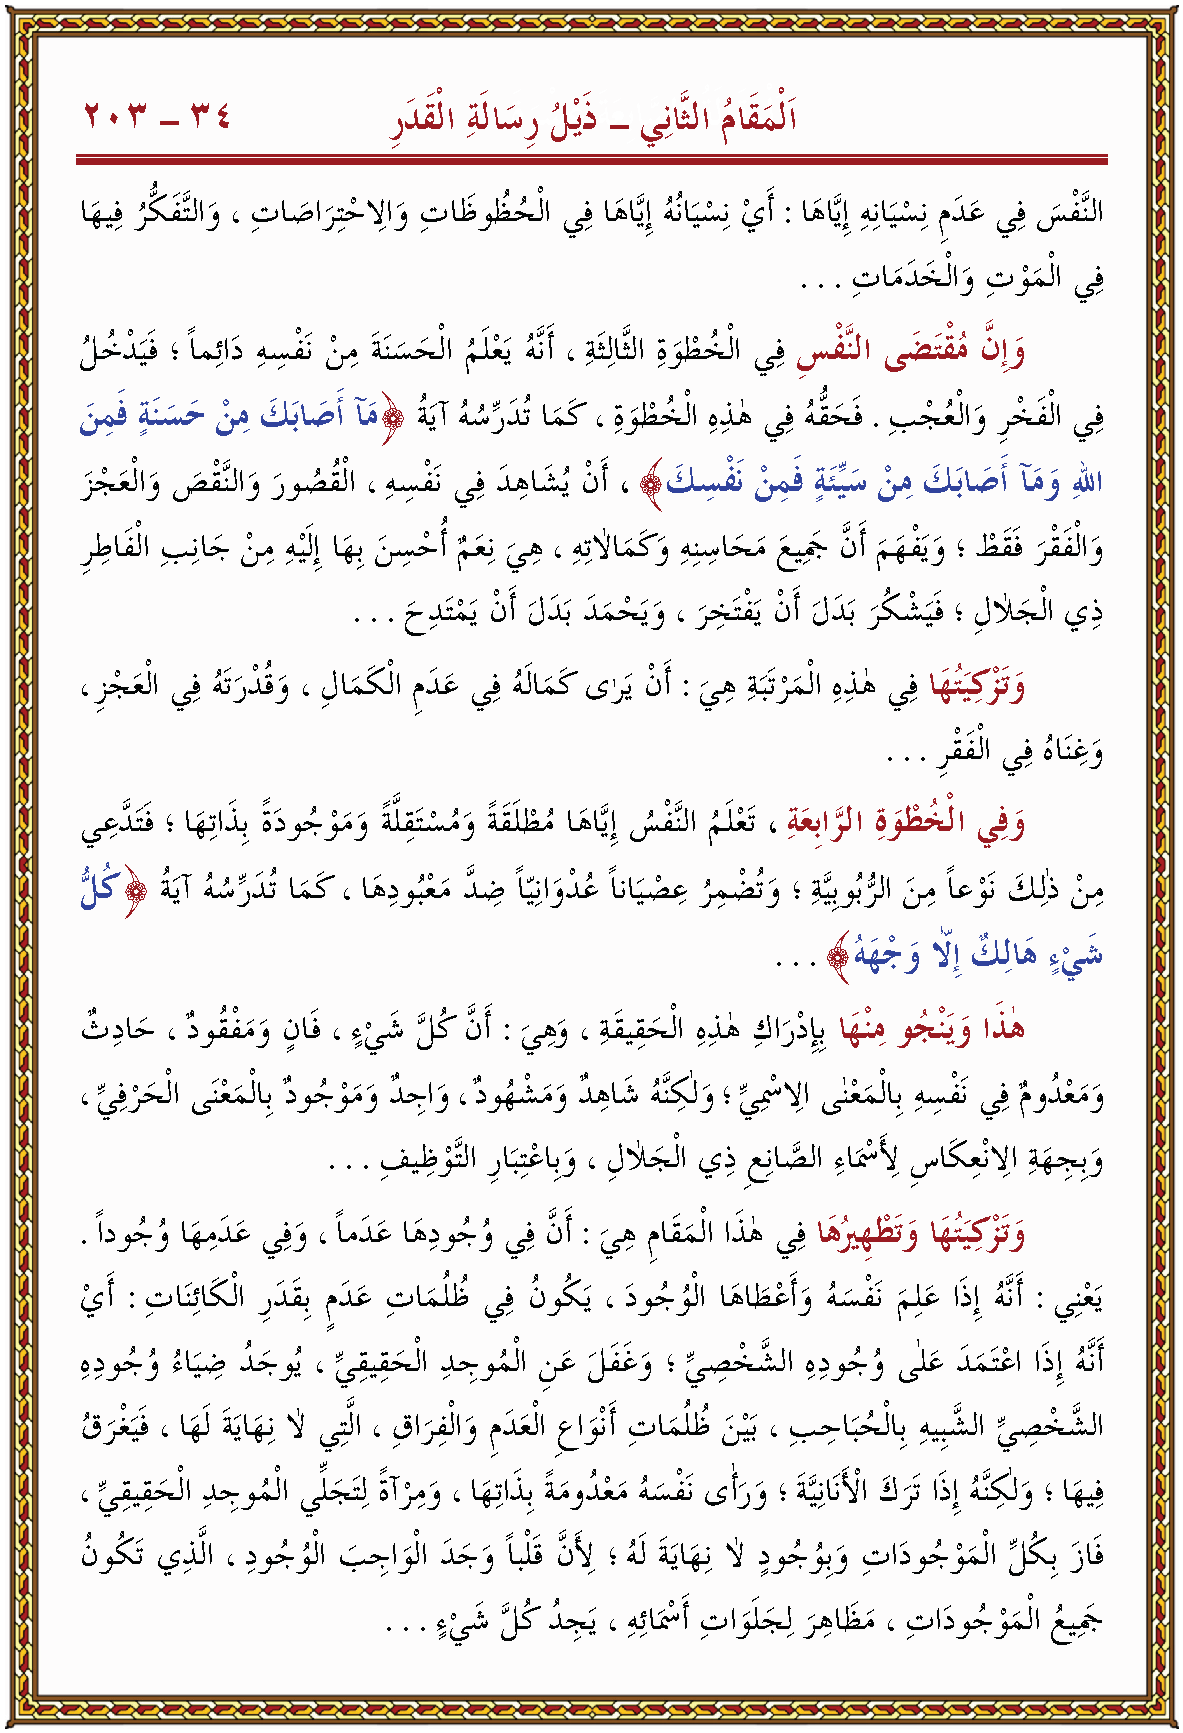 اَلْمَقَامُ الثَّانِي ــ ذَيْلُ رِسَالَةِ الْقَدَرِ ٣٤ ــ ٢٠٣
النَّفْسَ فِي عَدَمِ نِسْيَانِهِ إِيَّاهَا : أَيْ نِسْيَانُهُ إِيَّاهَا فِي الْحُظُوظَاتِ وَالِاحْتِرَاصَاتِ ، وَالتَّفَكُّرُ فِيهَا
فِي الْمَوْتِ وَالْخَدَمَاتِ . . .
وَإِنَّ مُقْتَضَى النَّفْسِ فِي الْخُطْوَةِ الثَّالِثَةِ ، أَنَّهُ يَعْلَمُ الْحَسَنَةَ مِنْ نَفْسِهِ دَائِماً ؛ فَيَدْخُلُ
فِي الْفَخْرِ وَالْعُجْبِ . فَحَقُّهُ فِي هٰذِهِ الْخُطْوَةِ ، كَمَا تُدَرِّسُهُ آيَةُ ﴿مَآ أَصَابَكَ مِنْ حَسَنَةٍ فَمِنَ
اللهِ وَمَآ أَصَابَكَ مِنْ سَيِّئَةٍ فَمِنْ نَفْسِكَ﴾ ، أَنْ يُشَاهِدَ فِي نَفْسِهِ ، الْقُصُورَ وَالنَّقْصَ وَالْعَجْزَ
وَالْفَقْرَ فَقَطْ ؛ وَيَفْهَمَ أَنَّ جَمِيعَ مَحَاسِنِهِ وَكَمَالَاتِهِ ، هِيَ نِعَمٌ أُحْسِنَ بِهَا إِلَيْهِ مِنْ جَانِبِ الْفَاطِرِ
ذِي الْجَلَالِ ؛ فَيَشْكُرَ بَدَلَ أَنْ يَفْتَخِرَ ، وَيَحْمَدَ بَدَلَ أَنْ يَمْتَدِحَ . . .
وَتَزْكِيَتُهَا فِي هٰذِهِ الْمَرْتَبَةِ هِيَ : أَنْ يَرٰى كَمَالَهُ فِي عَدَمِ الْكَمَالِ ، وَقُدْرَتَهُ فِي الْعَجْزِ ،
وَغِنَاهُ فِي الْفَقْرِ . . .
وَفِي الْخُطْوَةِ الرَّابِعَةِ ، تَعْلَمُ النَّفْسُ إِيَّاهَا مُطْلَقَةً وَمُسْتَقِلَّةً وَمَوْجُودَةً بِذَاتِهَا ؛ فَتَدَّعِي
مِنْ ذٰلِكَ نَوْعاً مِنَ الرُّبُوبِيَّةِ ؛ وَتُضْمِرُ عِصْيَاناً عُدْوَانِيّاً ضِدَّ مَعْبُودِهَا ، كَمَا تُدَرِّسُهُ آيَةُ ﴿كُلُّ
شَيْءٍ هَالِكٌ إِلَّا وَجْهَهُ﴾ . . .
هٰذَا وَيَنْجُو مِنْهَا بِإِدْرَاكِ هٰذِهِ الْحَقِيقَةِ ، وَهِيَ : أَنَّ كُلَّ شَيْءٍ ، فَانٍ وَمَفْقُودٌ ، حَادِثٌ
وَمَعْدُومٌ فِي نَفْسِهِ بِالْمَعْنٰى الِاسْمِيِّ ؛ وَلٰكِنَّهُ شَاهِدٌ وَمَشْهُودٌ ، وَاجِدٌ وَمَوْجُودٌ بِالْمَعْنَى الْحَرْفِيِّ ،
وَبِجِهَةِ الِانْعِكَاسِ لِأَسْمَاءِ الصَّانِعِ ذِي الْجَلَالِ ، وَبِاعْتِبَارِ التَّوْظِيفِ . . .
وَتَزْكِيَتُهَا وَتَطْهِيرُهَا فِي هٰذَا الْمَقَامِ هِيَ : أَنَّ فِي وُجُودِهَا عَدَماً ، وَفِي عَدَمِهَا وُجُوداً .
يَعْنِي : أَنَّهُ إِذَا عَلِمَ نَفْسَهُ وَأَعْطَاهَا الْوُجُودَ ، يَكُونُ فِي ظُلُمَاتِ عَدَمٍ بِقَدَرِ الْكَائِنَاتِ : أَيْ
أَنَّهُ إِذَا اعْتَمَدَ عَلٰى وُجُودِهِ الشَّخْصِيِّ ؛ وَغَفَلَ عَنِ الْمُوجِدِ الْحَقِيقِيِّ ، يُوجَدُ ضِيَاءُ وُجُودِهِ
الشَّخْصِيِّ الشَّبِيهِ بِالْحُبَاحِبِ ، بَيْنَ ظُلُمَاتِ أَنْوَاعِ الْعَدَمِ وَالْفِرَاقِ ، الَّتِي لَا نِهَايَةَ لَهَا ، فَيَغْرَقُ
فِيهَا ؛ وَلٰكِنَّهُ إِذَا تَرَكَ الْأَنَانِيَّةَ ؛ وَرَأٰى نَفْسَهُ مَعْدُومَةً بِذَاتِهَا ، وَمِرْآةً لِتَجَلِّي الْمُوجِدِ الْحَقِيقِيِّ ،
فَازَ بِكُلِّ الْمَوْجُودَاتِ وَبِوُجُودٍ لَا نِهَايَةَ لَهُ ؛ لِأَنَّ قَلْباً وَجَدَ الْوَاجِبَ الْوُجُودِ ، الَّذِي تَكُونُ
جَمِيعُ الْمَوْجُودَاتِ ، مَظَاهِرَ لِجَلَوَاتِ أَسْمَائِهِ ، يَجِدُ كُلَّ شَيْءٍ . . .